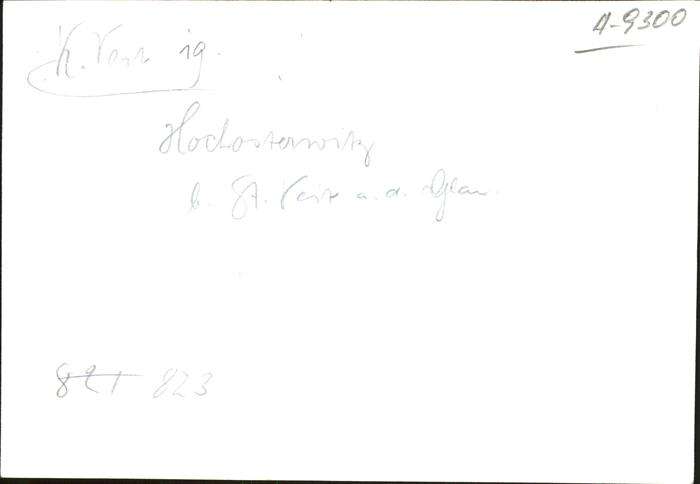 A-9300
K. ig.
Hochosterwitz
b. St. Veit a. d. Glan.
821 823